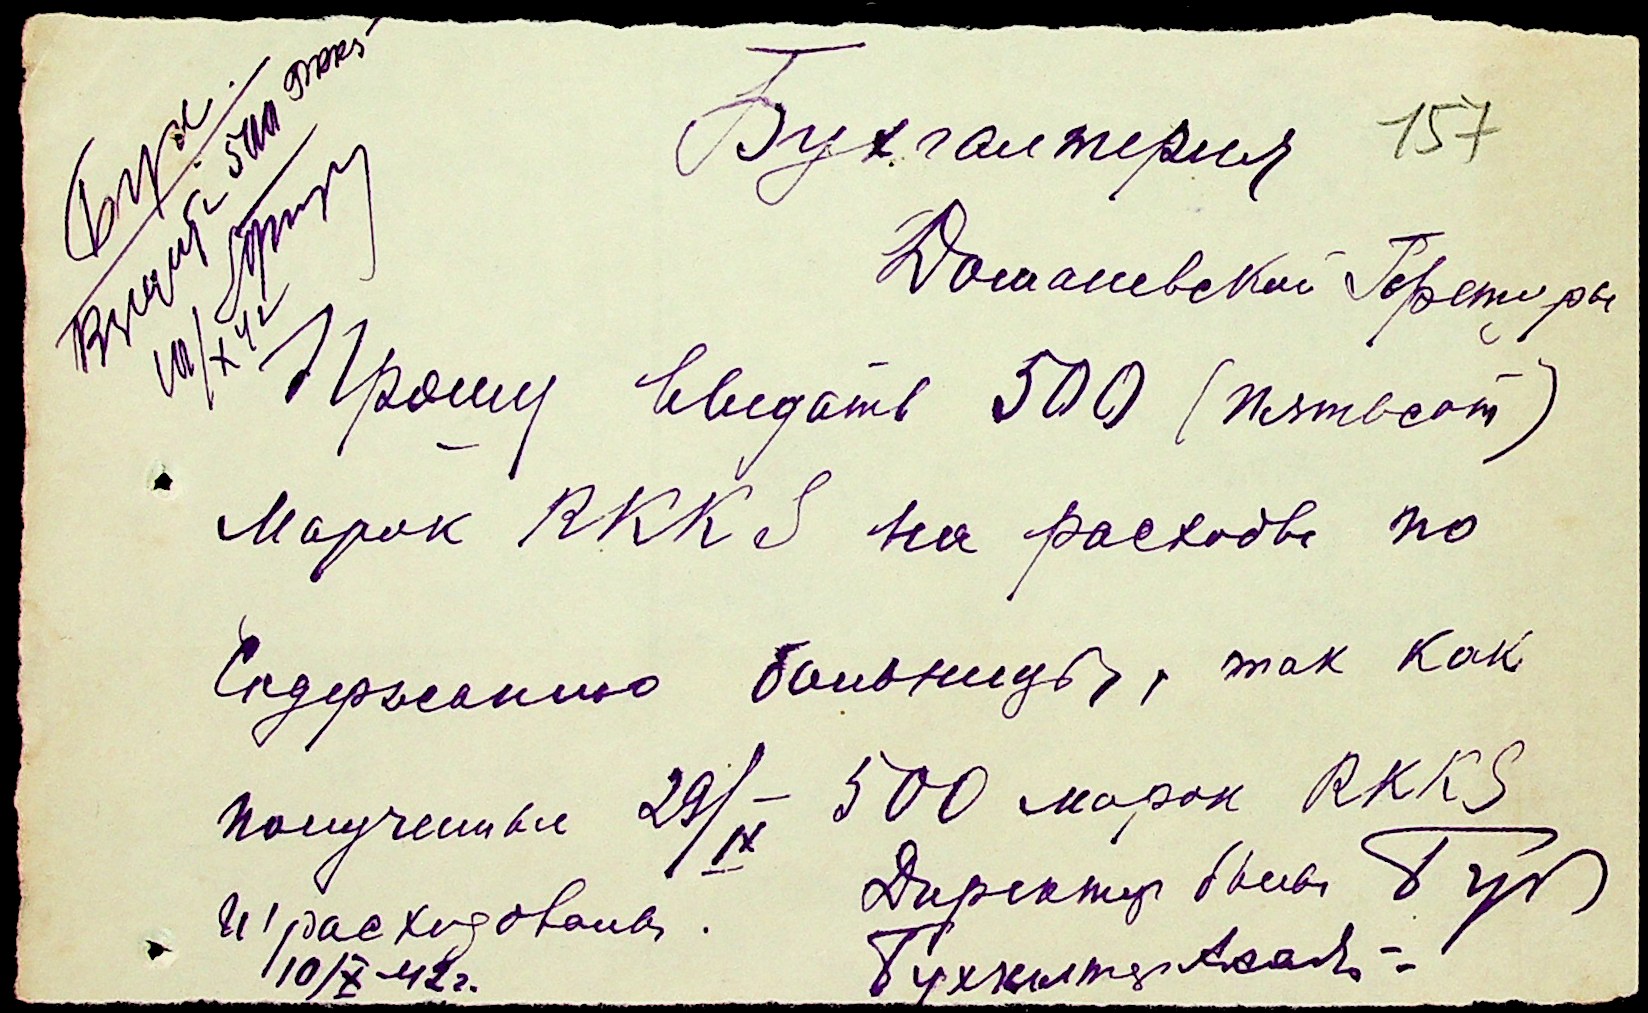 Бух.
Выдать 500 RKKS
10/X 42
Бухгалтерия 157
Доманевской Претуры
Прошу выдать 500 (пятьсот)
Марок RKKS на расходы по
Содержанию больницы, так как
полученые 29/IX – 500 марок RKKS
израсходованы.
10/X-42г.
Директор больн.
Бухгалтер